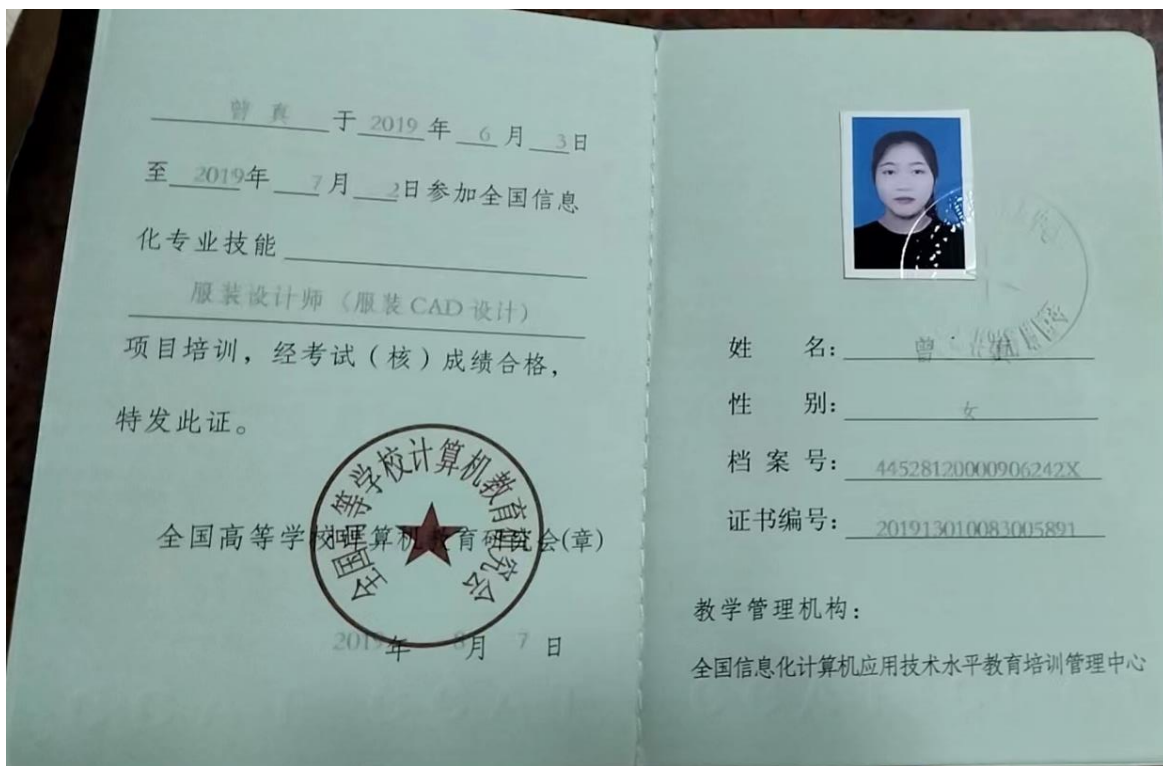 曾真 于 2019 年 6 月 3 日
至 2019 年 7 月 2 日参加全国信息
化专业技能
服装设计师（服装 CAD 设计）
项目培训，经考试（核）成绩合格，
特发此证。
全国高等学校计算机教育研究会(章)
全国高等学校计算机教育研究会
2019 年 8 月 7 日
姓 名： 曾 真
性 别： 女
档 案 号： 44528120000906242X
证书编号： 201913010083005891
教学管理机构：
全国信息化计算机应用技术水平教育培训管理中心